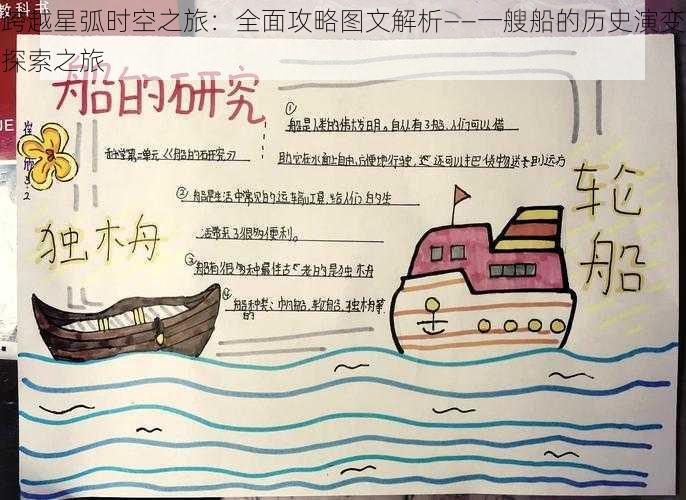 跨越星弧时空之旅：全面攻略图文解析——一艘船的历史演变
探索之旅
教科书
船的研究
科学第二单元《船的研究》
①
船是人类的伟大发明。自从有了船，人们可以借
助它在水面上自由、方便地行驶，还可以把货物送至到远方
②船是生活中常见的运输工具，给人们的生
活带来了很多便利。
③船有很多种最古老的是独木舟
④船的种类：帆船、轮船、独木舟等
独木舟
轮船